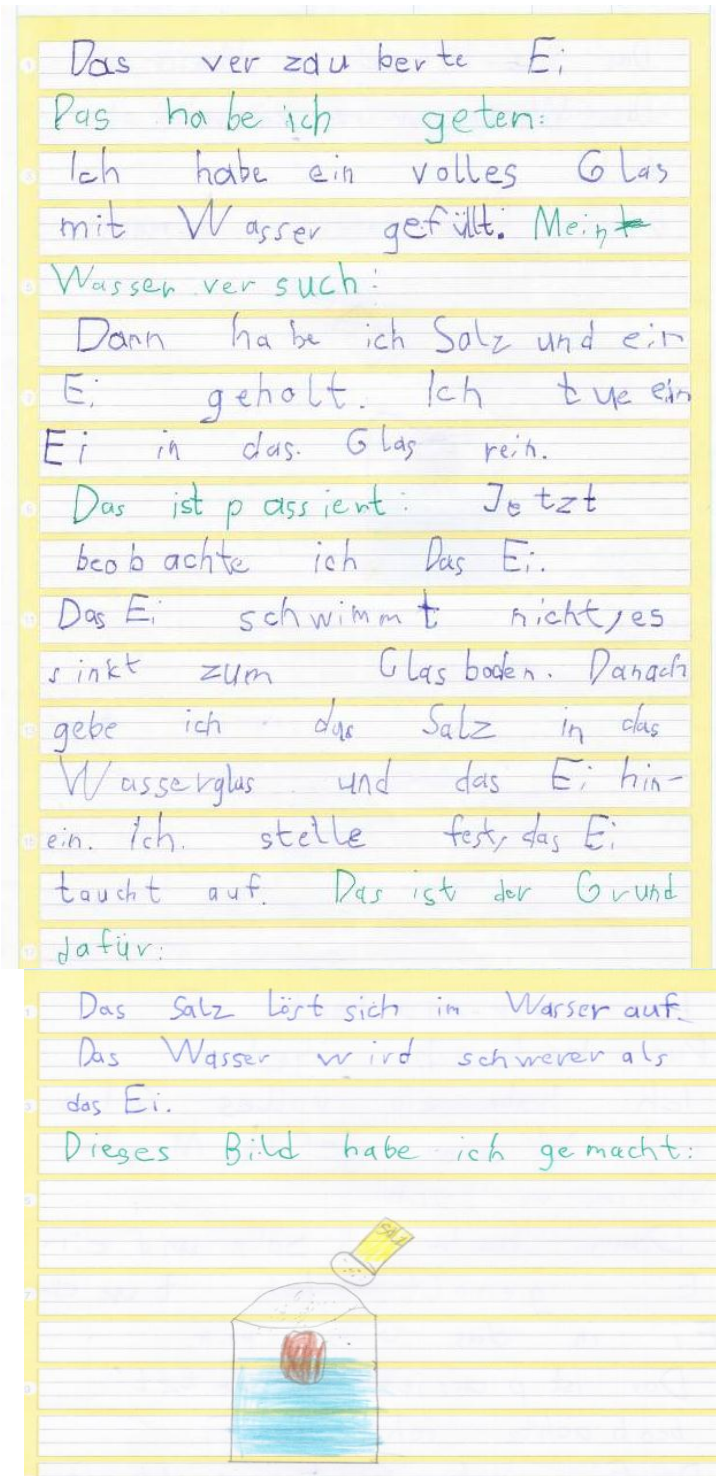 Das verzauberte Ei
Das habe ich geten:
Ich habe ein volles Glas
mit Wasser gefüllt. Mein
Wasserversuch:
Dann habe ich Salz und ein
Ei geholt. Ich tue ein
Ei in das Glas rein.
Das ist passiert: Jetzt
beobachte ich Das Ei.
Das Ei schwimmt nicht, es
sinkt zum Glasboden. Danach
gebe ich das Salz in das
Wasserglas und das Ei hin-
ein. Ich stelle fest, das Ei
taucht auf. Das ist der Grund
dafür:
Das Salz löst sich im Wasser auf.
Das Wasser wird schwerer als
das Ei.
Dieses Bild habe ich gemacht:
SALZ